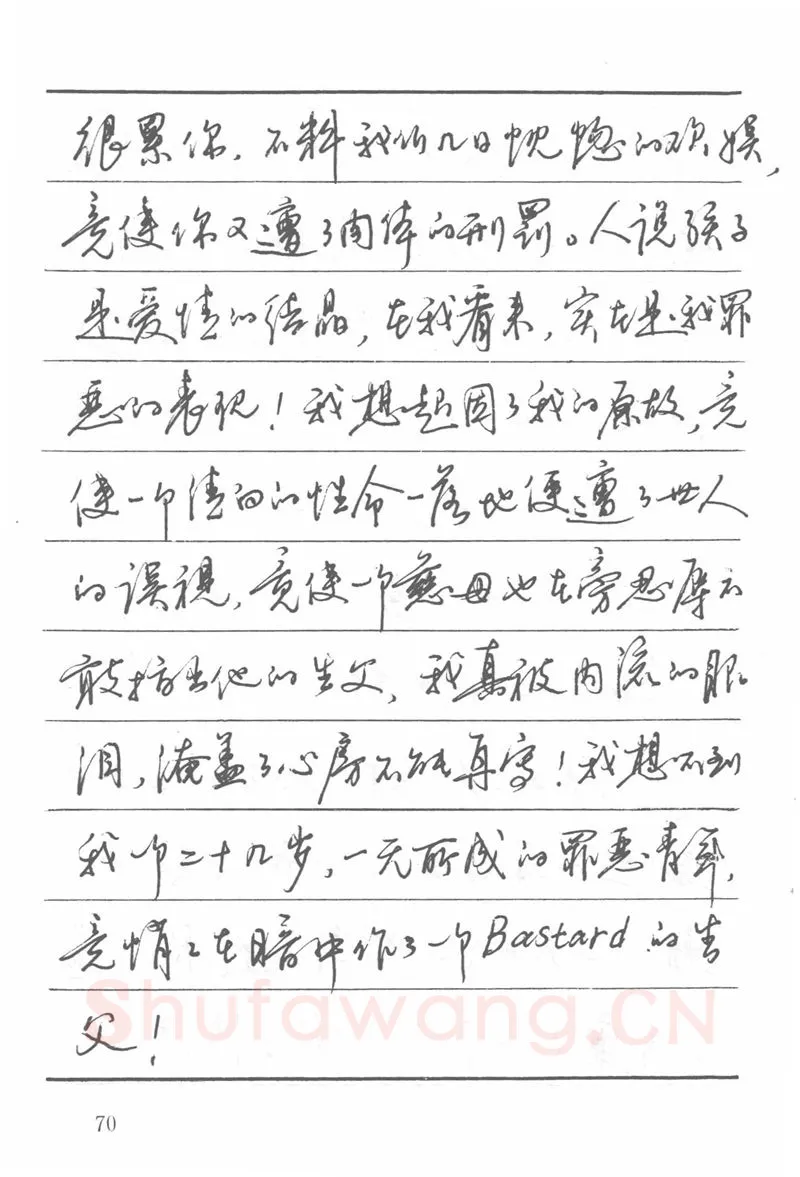 很累你，不料我们几日恍惚的欢娱，
竟使你又遭了肉体的刑罚。人说孩子
是爱情的结晶，在我看来，实在是我罪
恶的表现！我想起因了我的原故，竟
使一个清白的性命一落地便遭了世人
的误视，竟使一个慈母也在旁忍辱不
敢指出他的生父，我真被内流的眼
泪，淹盖了心房不能再写！我想不到
我个二十几岁，一无所成的罪恶青年，
竟悄悄在暗中作了一个Bastard的生
父！
Shufawang.CN
70